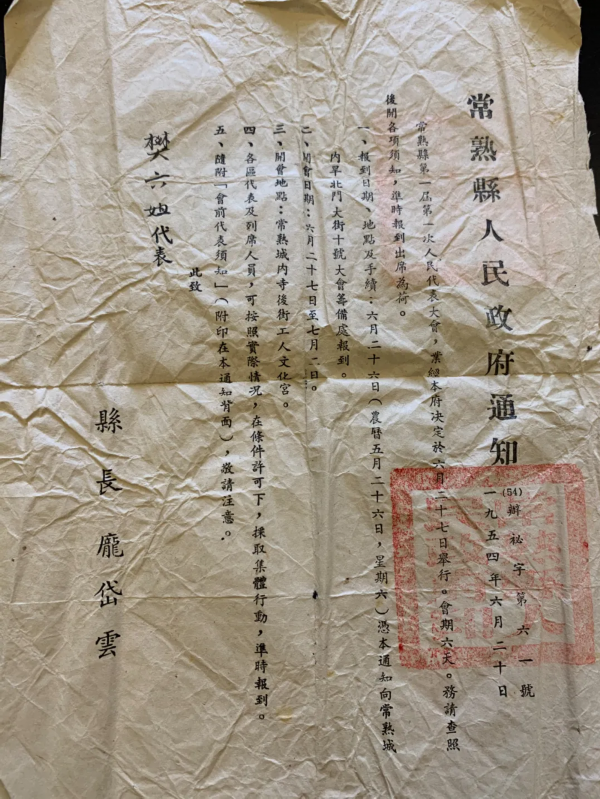 常熟縣人民政府通知
(54)辦祕字第六一號
一九五四年六月二十日
常熟縣第一屆第一次人民代表大會，業經本府决定於六月二十七日舉行。會期六天。務請查照
後開各項須知，準時報到出席為荷。
一、報到日期、地點及手續：六月二十六日（農曆五月二十六日，星期六）憑本通知向常熟城
內早北門大街十號大會籌備處報到。
二、開會日期：六月二十七日至七月二日。
三、開會地點：常熟城內寺後街工人文化宮。
四、各區代表及列席人員，可按照實際情况，在條件許可下，採取集體行動，準時報到。
五、隨附「會前代表須知」（附印在本通知背面），敬請注意。
此致
樊六姐代表
縣長龐岱雲